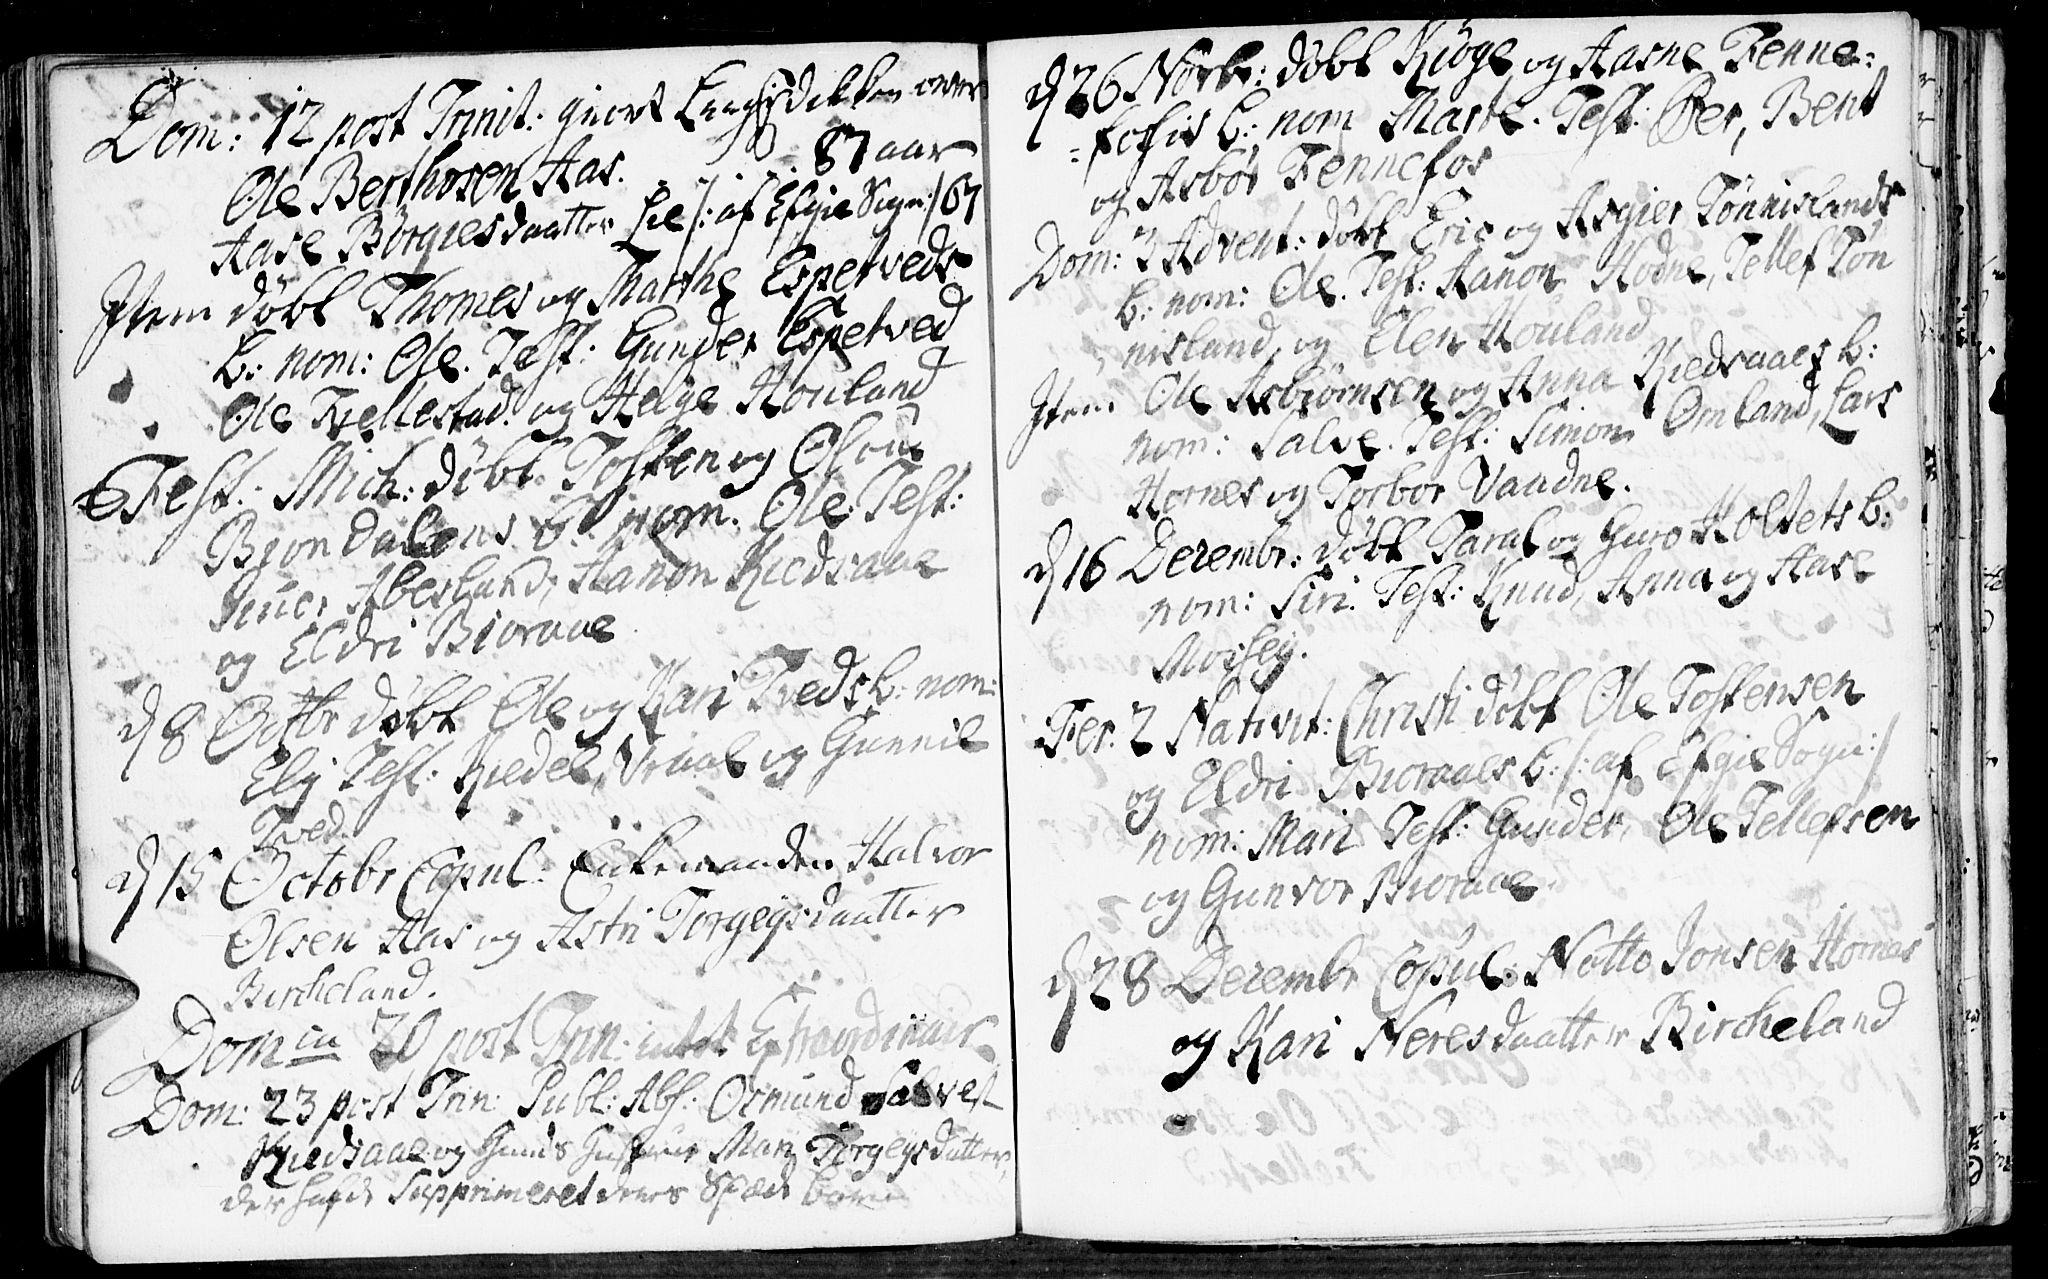 Dom: 12 post Trinit: giort over
Ole Berthosen Aas. 87 aar
Aase Börgiesdaatter Lie /: af Efgie Sogn:/ 67
Item döbt Thomes og Marthe Espetveds
b: nom: Ole. Test: Gunder Espetved
Ole Kellestad og Helge Houland
Fest: Mich: döbt Tosten og Olou
Bjondalens b: nom. Ole. Test:
Abesland, Aanon Kiedsaae
og Eldri Bioraae
d 8 Octbr döbt Ole og Kari Tveds b: nom:
Elij Test: Kiedel, Vraal og Gunnil
Tved.
d 15 Octobr Copul: Enkemanden Halvor
Olsen Aas og Astri Torgeysdaatter
Bircheland.
Domin 20 post Trin: intet Extraordinair
Dom: 23 post Trin: Publ: Abs: Osmund Salvest
Kiedsaae og Mari Torgeysdatter,
der hafde Supprimeret deres Spæde barn
d 26 Novbr: döbt Kiöge og Aasne Fenne=
=fosses b: nom Marte. Test: Per, Bent
og Asbör Fennefos
Dom: 3 Advent: döbt Eric og Asgier Tönnislands
b: nom: Ole. Test: Aanon Hodne, Tellef Tön
nisland, og Elen Houland
Item Ole Asbiörnsen og Anna Kiedsaaes b:
nom: Salve. Test: Simon Omland, Lars
Hornes og Torbor Vandne.
d 16 Decembr: döbt Taral og Guro Holtets b:
nom: Siri. Test: Knud, Anna og Aase
Moseij.
Fer. 2 Nativit: Christi döbt Ole Tostensen
og Eldri Bioraaes b: /: af Efgie Sogn:/
nom: Mari Test: Gunder, Ole Tellefsen
og Gunvor Bioraae.
d 28 Decembr Copul: Notto Jonsen Hornes
og Kari Neresdaatter Bircheland